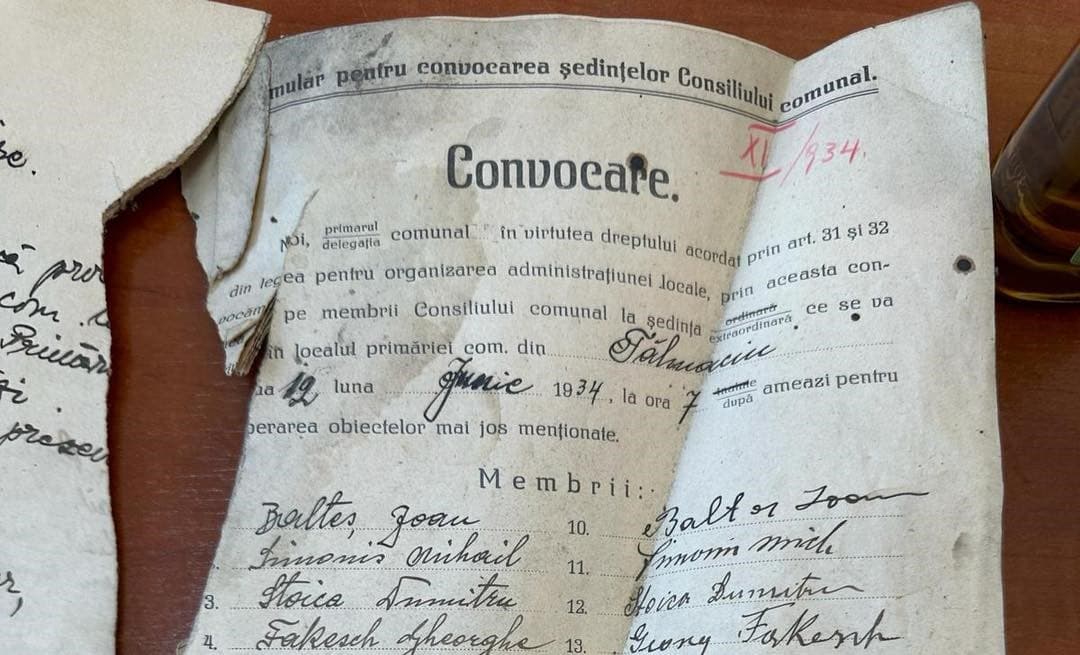 mular pentru convocarea ședințelor Consiliului comunal.
XI/934.
Convocare.
Noi, primarul delegația comunal în virtutea dreptului acordat prin art. 31 și 32
din legea pentru organizarea administrațiunei locale, prin aceasta con-
vocăm pe membrii Consiliului comunal la ședința ordinară extraordinară ce se va
în localul primăriei com. din Tălmaciu
ua 12 luna Junie 1934, la ora 7 înainte după ameazi pentru
perarea obiectelor mai jos menționate.
Membrii:
Baltes, Joan 10. Baltes Joan
Simonis Mihail 11. Simonis Mich
3. Stoica Dumitru 12. Stoica Dumitru
4. Fakesch Gheorghe 13. Georg Fakesch
se.
că pro
com.
Primăr
prezen